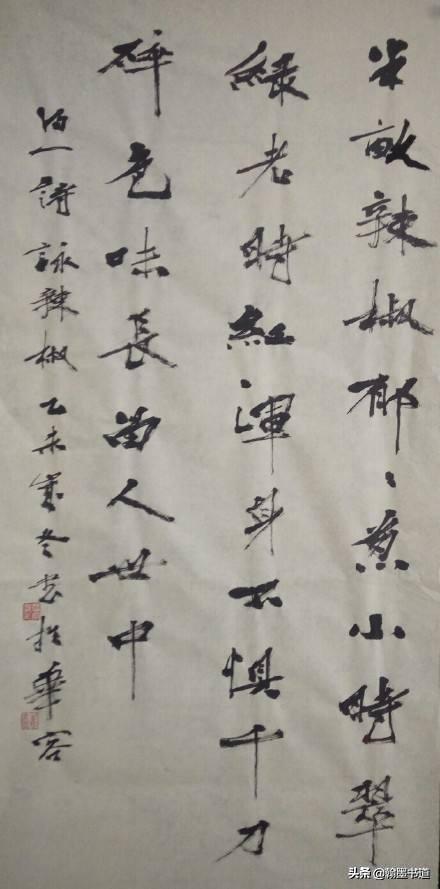 半畝辣椒郁々葱小時翠
綠老時紅渾身不懼千刀
碎色味長留人世中
一詩詠辣椒乙未寒冬書於華容
头条 @翰墨书道